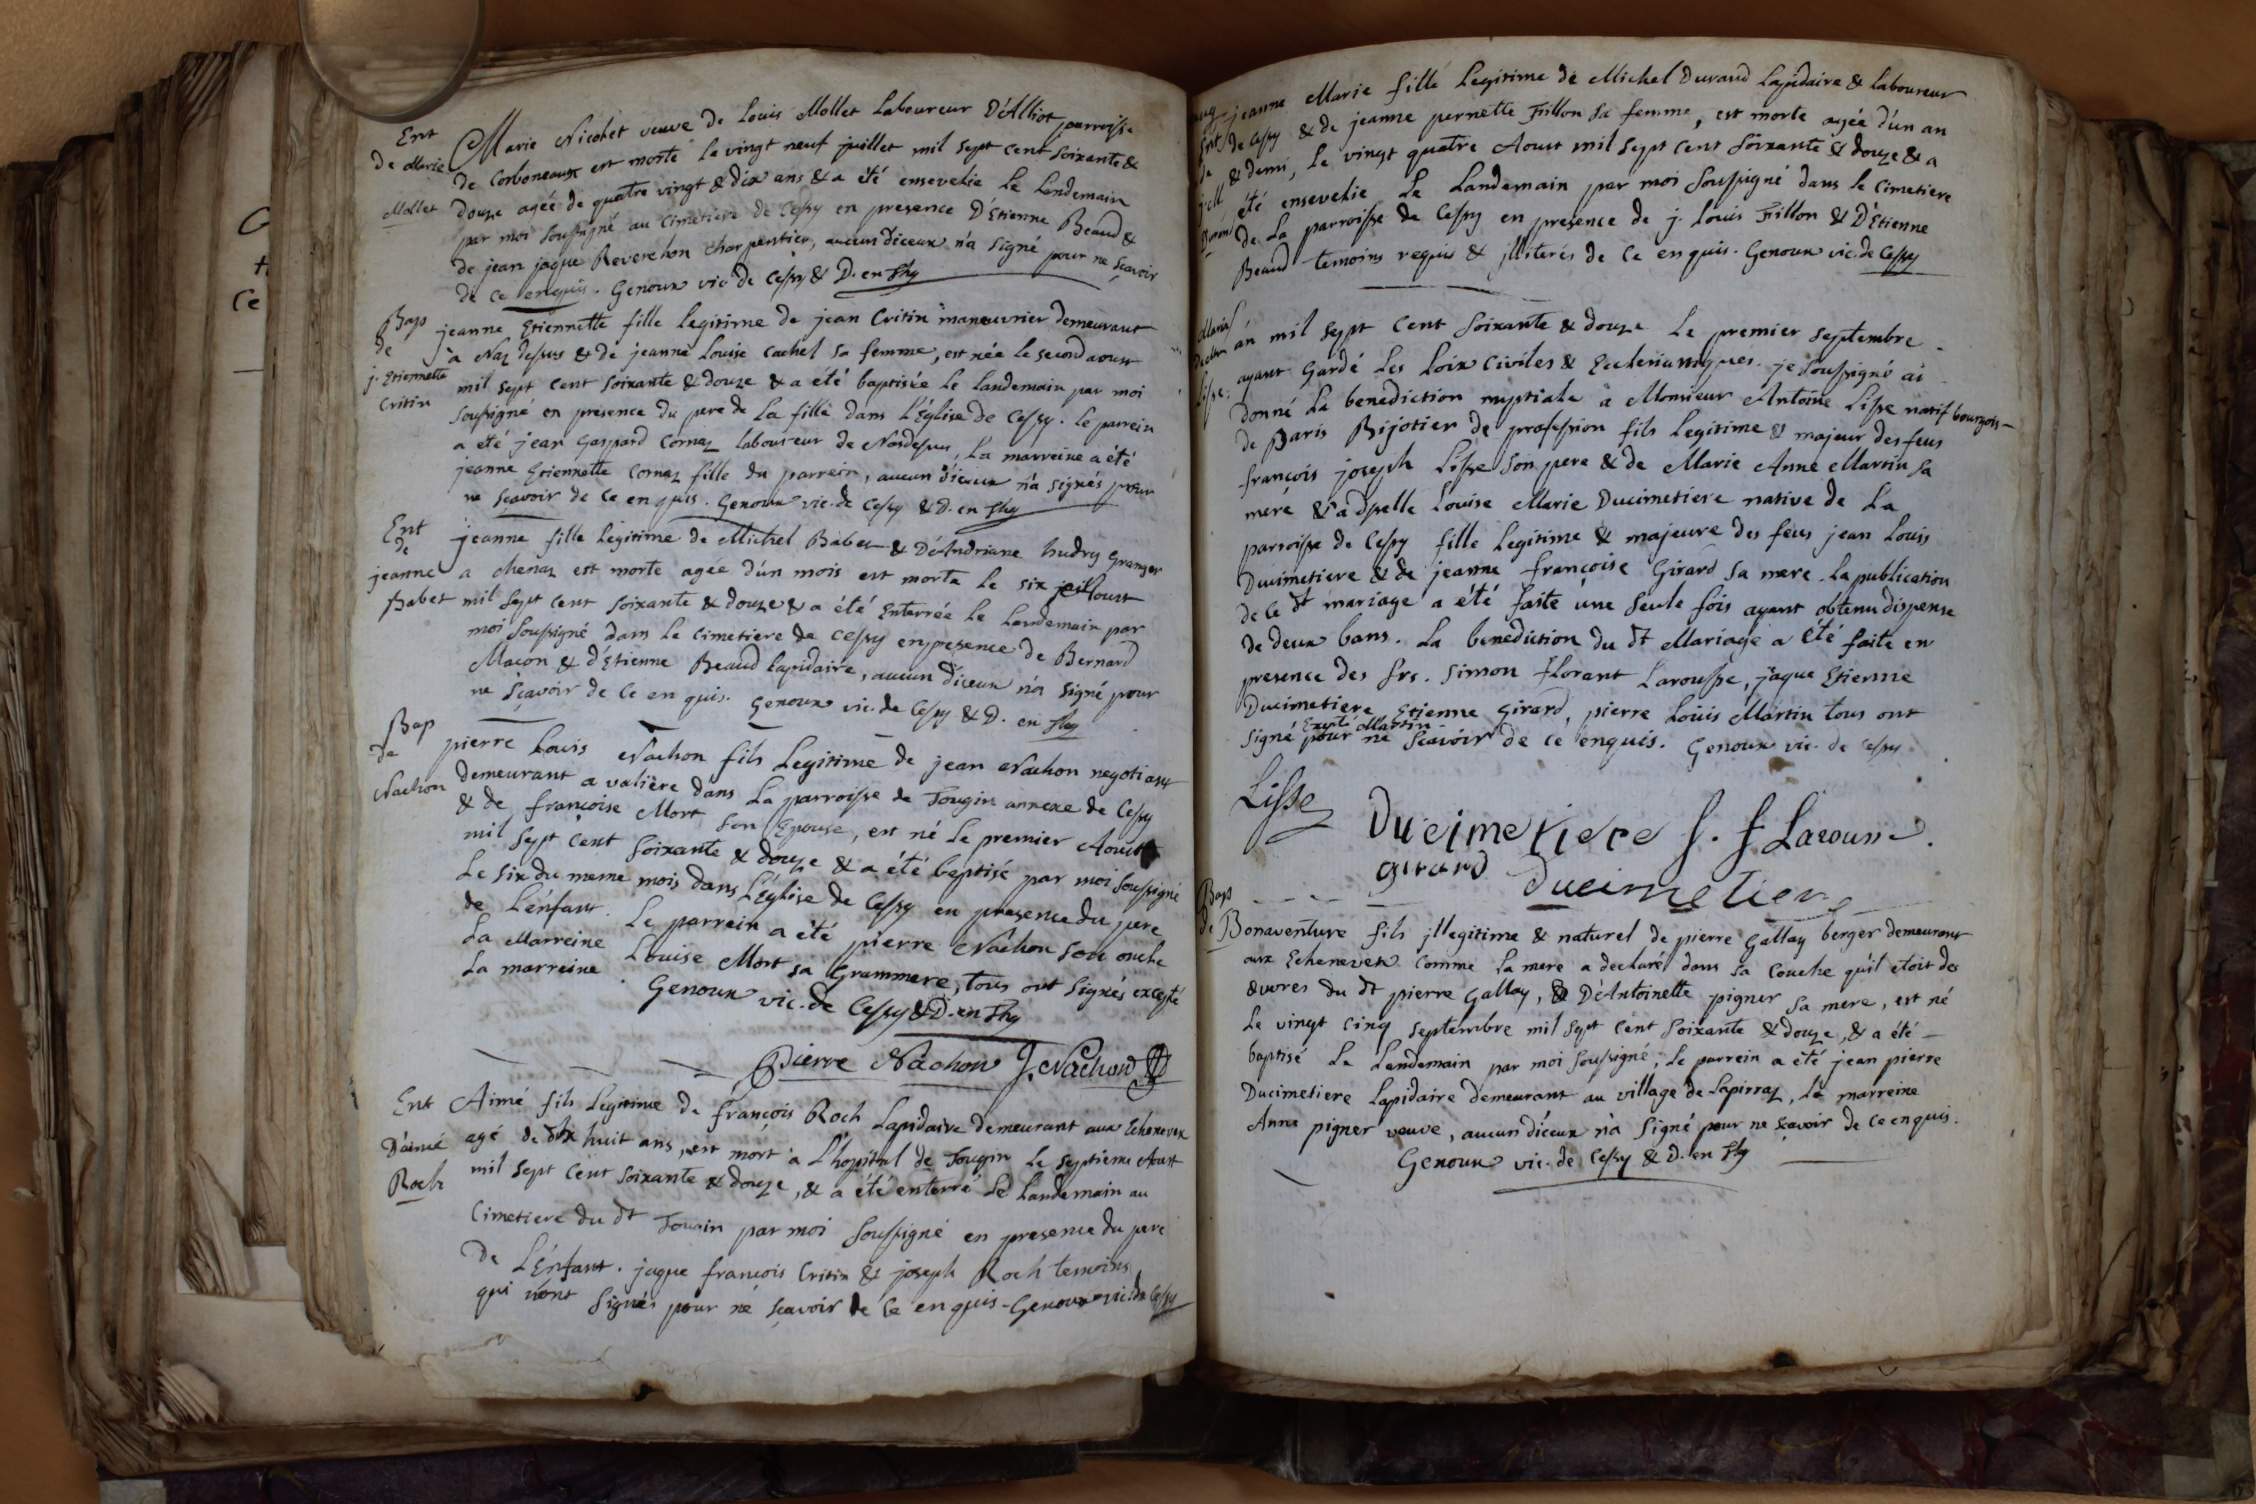 Ent
De Marie
Mollet
Marie Nicolet veuve de Louis Mollet Laboureur D'Alliot parroisse
de Corboneaux est morte le vingt neuf juillet mil sept cent soixante &
douze agée de quatre vingt & dix ans & a été ensevelie le Landemain
par moi soussigné au Cimetiere de Cessy en presence D'Etienne Beaud &
de jean jaque Reverchon charpentier, aucun diceux n'a signé pour ne sçavoir
de ce enquis. Genoux vic de Cessy & D. en Thg
Bap
de
j. Etiennette
Critin
jeanne Etiennette fille legitime de jean Critin maneuvrier demeurant
à Naz dessus & de jeanne Louise Cachel sa femme, est née le second aoust
mil sept cent soixante & douze & a été baptisée le landemain par moi
soussigné en presence du pere de La fille dans L'Église de Cessy. le parrein
a été jean Gaspard Cornaz laboureur de Nazdessus, La marreine a été
jeanne Etiennette Cornaz fille du parrein, aucun diceux n'a signés pour
ne sçavoir de ce enquis. Genoux vic. de Cessy & D. en Thg
Ent
de
jeanne
Babet
jeanne fille legitime de Michel Babet & D'Andriane hudry Granger
a chenaz est morte agée d'un mois est morte le six aoust
mil sept cent soixante & douze & a été Enterrée le Landemain par
moi soussigné dans le Cimetiere de Cessy en presence de Bernard
Macon & d'Etienne Beaud Lapidaire, aucun diceux n'a signé pour
ne sçavoir de ce en quis. Genoux vic. de Cessy & D. en Thg
Bap
de
Nachon
pierre Louis Nachon fils Legitime de jean Nachon negotiant
demeurant a valière dans La parroisse de Tougin annexe de Cessy
& de françoise Mort son Epouse, est né le premier Aoust
mil sept cent soixante & douze & a été baptisé par moi soussigné
Le six du meme mois dans L'Église de Cessy en presence du pere
de L'énfant. Le parrein a été pierre Nachon son oncle
La Marreine Louise Mort sa Grammere, tous ont signés excepté
La marreine. Genoux vic. de Cessy & D. en Thg
Pierre Nachon J. Nachon
Ent
D'aimé
Roch
Aimé fils Legitime de françois Roch Lapidaire demeurant aux Echenevex
agé de dix huit ans, est mort a L'hopital de Tougin le septieme Aoust
mil sept cent soixante & douze, & a été enterré Le Landemain au
Cimetiere du dt Tougin par moi soussigné en presence du pere
de L'énfant. jaque françois Critin & joseph Roch temoins
qui n'ont signés pour né sçavoir de ce en quis. Genoux vic. de Cessy
Ent
de
jeanne Marie fille Legitime de Michel Durand Lapidaire & laboureur
de Cessy & de jeanne pernette Frillon sa femme, est morte agée d'un an
& demi, Le vingt quatre Aoust mil sept cent soixante & douze & a
été ensevelie Le Landemain par moi soussigné dans le Cimetiere
de La parroisse de Cessy en presence de j. Louis Frillon & D'Etienne
Beaud temoins requis & jlliterés de ce enquis. Genoux vic. de Cessy
Lisse.
an mil sept cent soixante & douze Le premier septembre
ayant Gardé les Loix civiles & Ecclesiastiques. je soussigné ai
donné La benediction nuptiale a Monsieur Antoine Lisse natif bourgois
de Paris Bijotier de profession fils legitime & majeur des feus
françois joseph Lisse son pere & de Marie Anne Martin sa
mere & a dselle Louise Marie Ducimetiere native de La
parroisse de Cessy fille Legitime & majeure des feus jean Louis
Ducimetiere & de jeanne françoise Girard sa mere. La publication
de ce dt mariage a été faite une seule fois ayant obtenu dispense
de deux bans. La benediction du dt Mariage a été faite en
presence des srs. Simon Florant Larousse, jaque Etienne
Ducimetiere Etienne Girard, pierre Louis Martin tous ont
signé Excepté Martin pour ne sçavoir de ce enquis. Genoux vic. de Cessy
Lisse
Ducimetiere S. f Larousse.
girard Ducimetiere
Bap
de
Bonaventure fils jllegitime & naturel de pierre Gallay berger demeurant
aux Echenevex comme La mere a declaré dans sa couche qu'il etoit des
œuvres du dt pierre Gallay, & D'Antoinette pigner sa mere, est né
Le vingt cinq septembre mil sept cent soixante & douze, & a été
baptisé Le Lendemain par moi soussigné; le parrein a été jean pierre
Ducimetiere Lapidaire demeurant au village de Lapirraz, La marreine
Anne pigner veuve, aucun diceux n'a signé pour ne sçavoir de ce enquis.
Genoux vic. de Cessy & D. en Thg